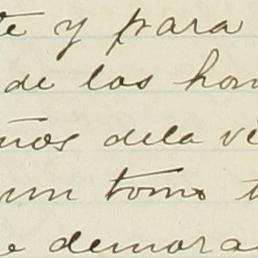 te y para
de los hom
ños dela vi
un tomo t
e demora